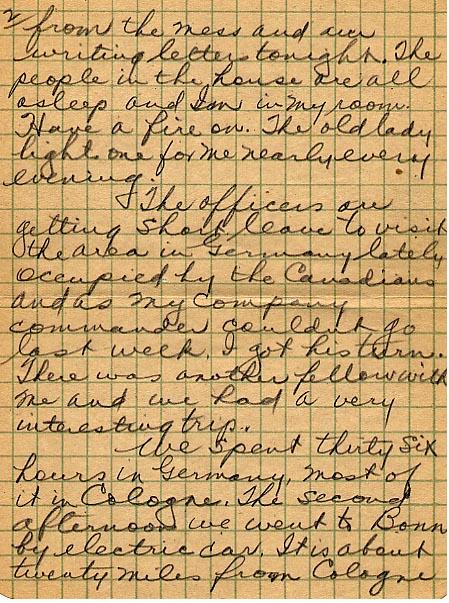 2/ from the mess and am
writing letters tonight. The
people in the house are all
asleep and Im in my room.
Have a fire on. The old lady
light one for me nearly every
evening.
The officers are
getting short leave to visit
the area in Germany lately
occupied by the Canadians
and as my company
commander couldnt go
last week, I got his turn.
There was another fellow with
me and we had a very
interesting trip.
We spent thirty six
hours in Germany, most of
it in Cologne. The second
afternoon we went to Bonn
by electric car. It is about
twenty miles from Cologne